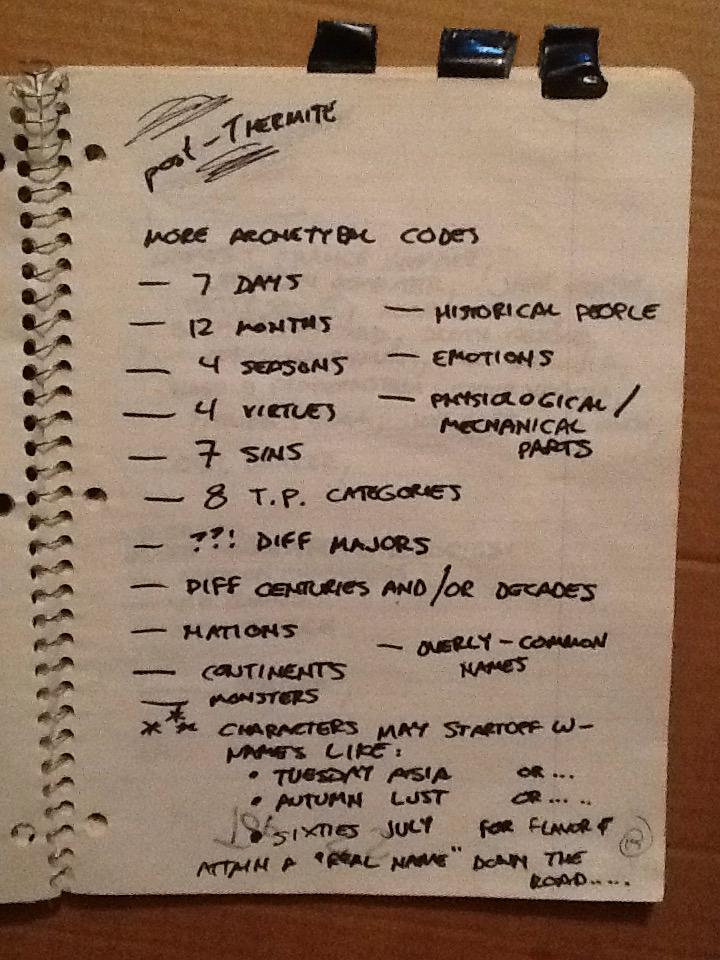 post-THERMITE
MORE ARCHETYPAL CODES
— 7 DAYS
— 12 MONTHS
— 4 SEASONS
— 4 VIRTUES
— 7 SINS
— 8 T.P. CATEGORIES
— ??! DIFF MAJORS
— DIFF CENTURIES AND/OR DECADES
— NATIONS
— CONTINENTS
— MONSTERS
— HISTORICAL PEOPLE
— EMOTIONS
— PHYSIOLOGICAL /
MECHANICAL
PARTS
— OVERLY-COMMON
NAMES
*** CHARACTERS MAY STARTOFF W-
NAMES LIKE:
• TUESDAY ASIA OR...
• AUTUMN LUST OR.....
• SIXTIES JULY FOR FLAVOR &
ATTAIN A "REAL NAME" DOWN THE
ROAD.....